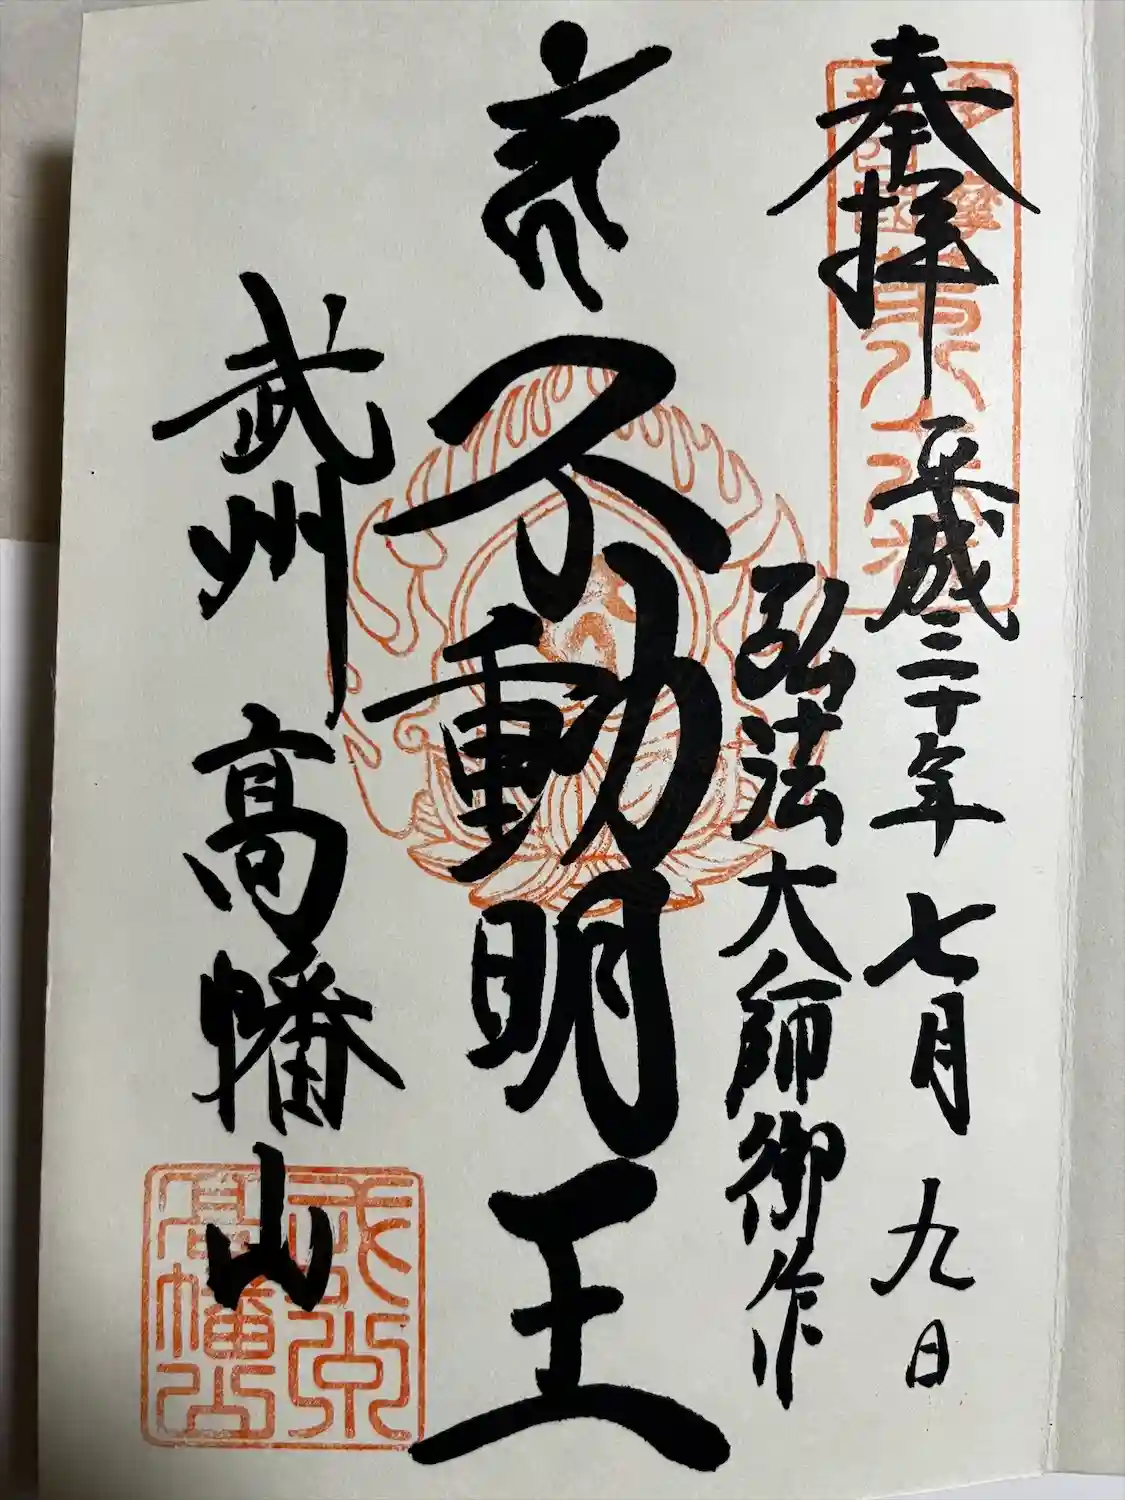 奉拝 平成三十年 七月 九日
弘法大師御作
不動明王
武州 高幡山